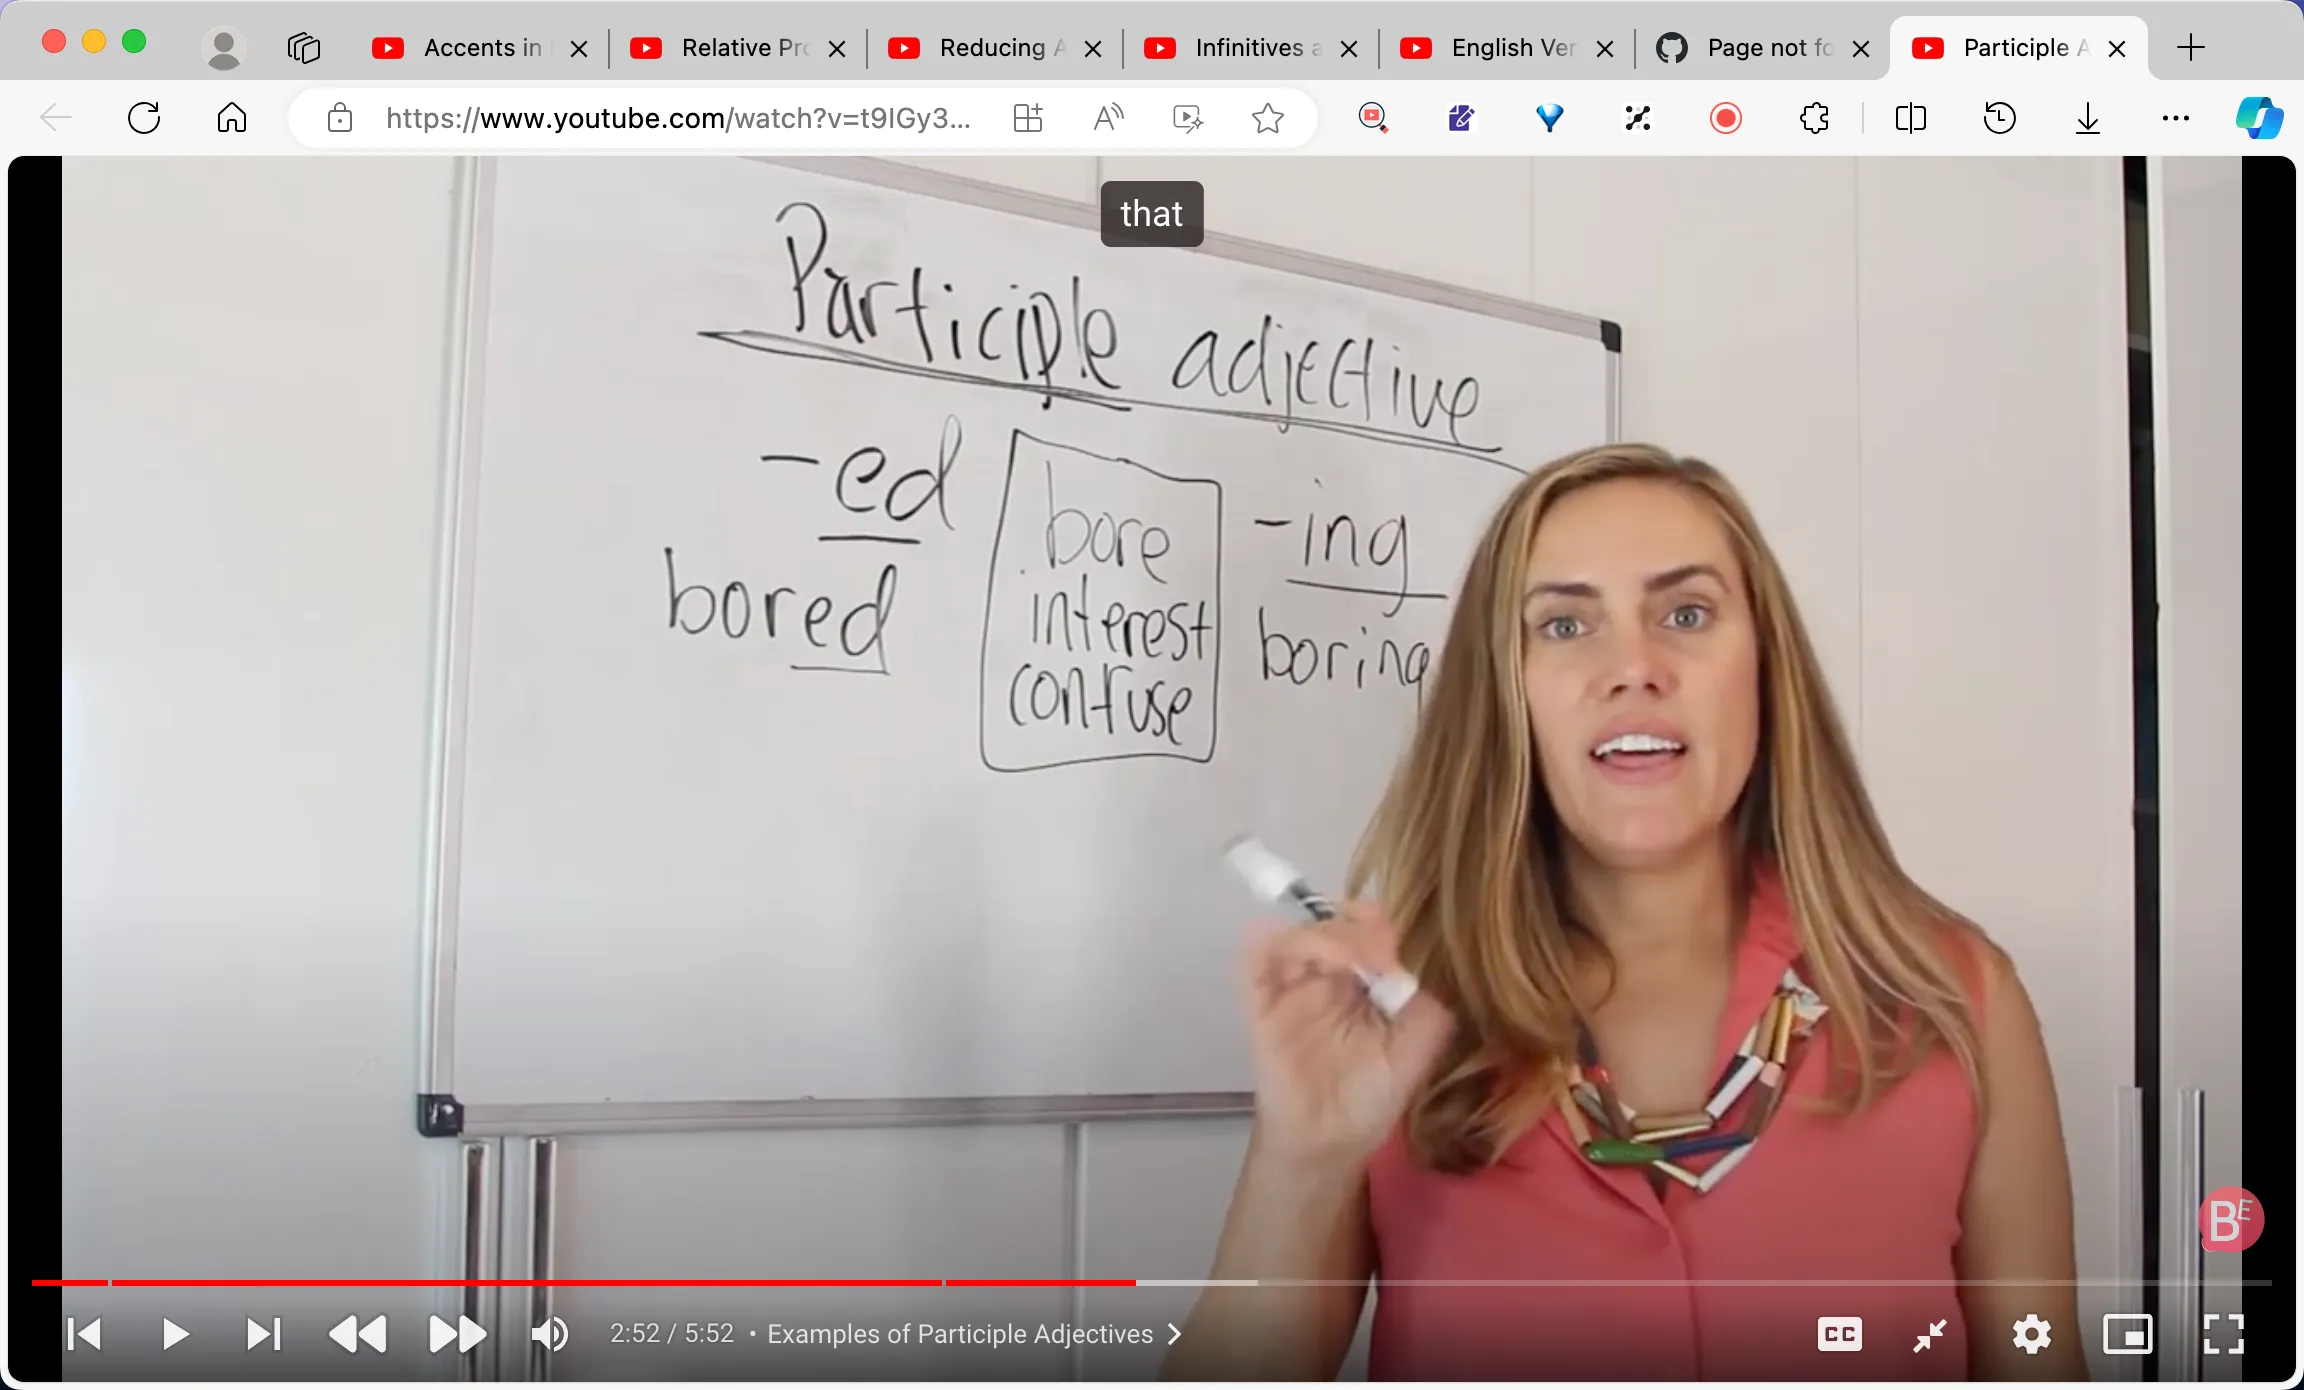 Accents in
Relative Pro
Reducing A
Infinitives a
English Ver
Page not fo
Participle A
https://www.youtube.com/watch?v=t9IGy3...
that
Participle adjective
-ed
bore
-ing
bored
interest
boring
confuse
BE
2:52 / 5:52 • Examples of Participle Adjectives
CC